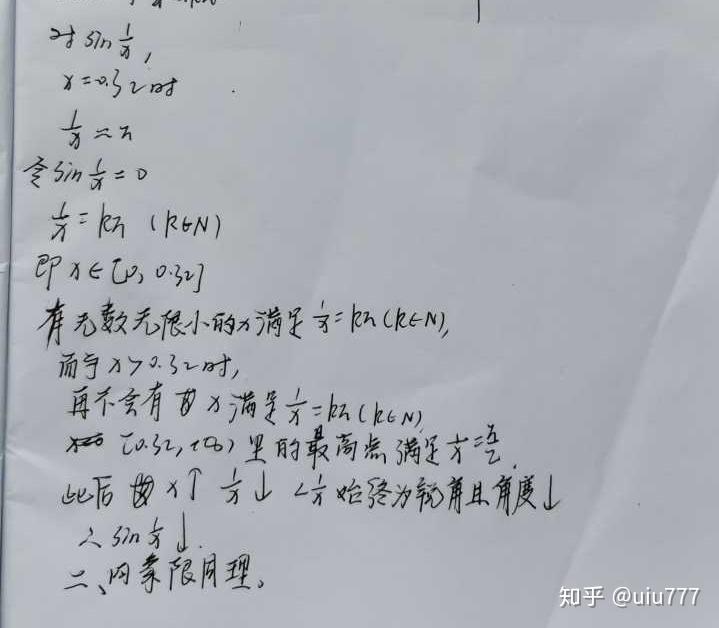 对 sin 1/x,
x=0.32时
1/x≈π
令 sin 1/x = 0
1/x = kπ (k∈N)
即 x∈[0, 0.32]
有无数无限小的x满足 1/x = kπ (k∈N),
而当 x>0.32时,
再不会有 x 满足 1/x = kπ (k∈N)
[0.32, +∞) 里的最高点满足 1/x = π/2.
此后 x↑ 1/x↓ ∠1/x 始终为锐角且角度↓
∴ sin 1/x ↓.
二、四象限同理。
知乎 @uiu777